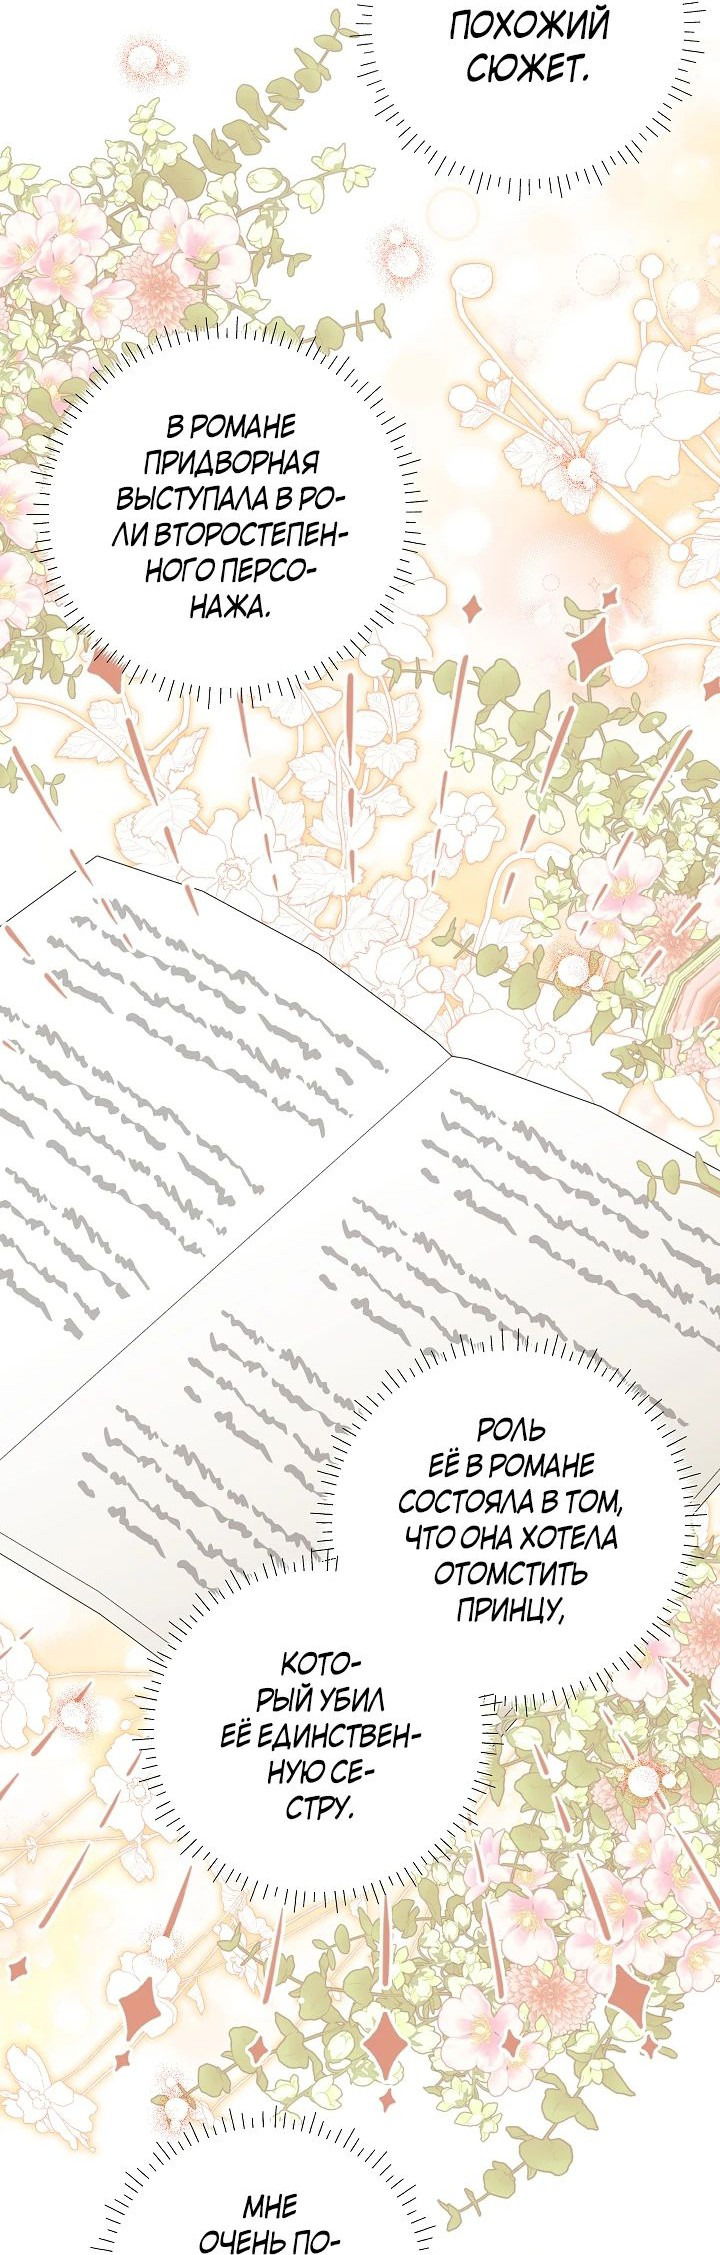 ПОХОЖИЙ
СЮЖЕТ.
В РОМАНЕ
ПРИДВОРНАЯ
ВЫСТУПАЛА В РО-
ЛИ ВТОРОСТЕПЕН-
НОГО ПЕРСО-
НАЖА.
РОЛЬ
ЕЁ В РОМАНЕ
СОСТОЯЛА В ТОМ,
ЧТО ОНА ХОТЕЛА
ОТОМСТИТЬ
ПРИНЦУ,
КОТО-
РЫЙ УБИЛ
ЕЁ ЕДИНСТВЕН-
НУЮ СЕ-
СТРУ.
МНЕ
ОЧЕНЬ ПО-